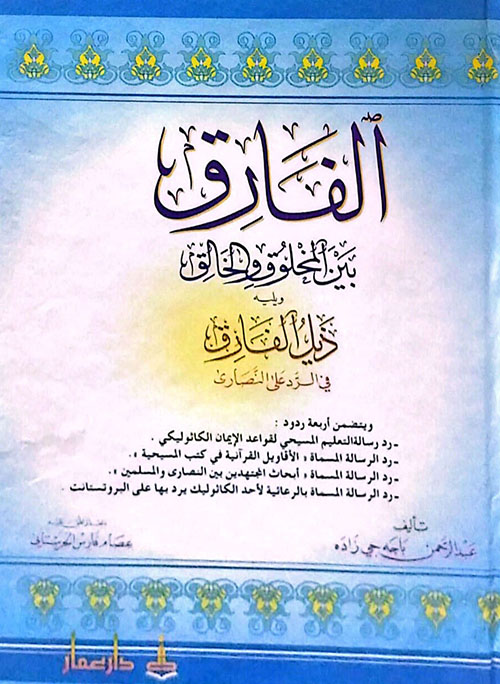 ٱلفَارِق
بَيْنَ ٱلمَخْلُوقِ وَالخَالِقِ
ويليه
ذَيْلُ ٱلفَارِقِ
في الرَّدِّ عَلى النَّصَارى
ويتضمن أربعة ردود :
ـ رد رسالة التعليم المسيحي لقواعد الإيمان الكاثوليكي .
ـ رد الرسالة المسماة « الأقاويل القرآنية في كتب المسيحية » .
ـ رد الرسالة المسماة « أبحاث المجتهدين بين النصارى والمسلمين » .
ـ رد الرسالة المسماة بالرعائية لأحد الكاثوليك يرد بها على البروتستانت .
تأليف
عبد الرحمن باجه جي زاده
عصام فارس الحرستاني
دار عمار